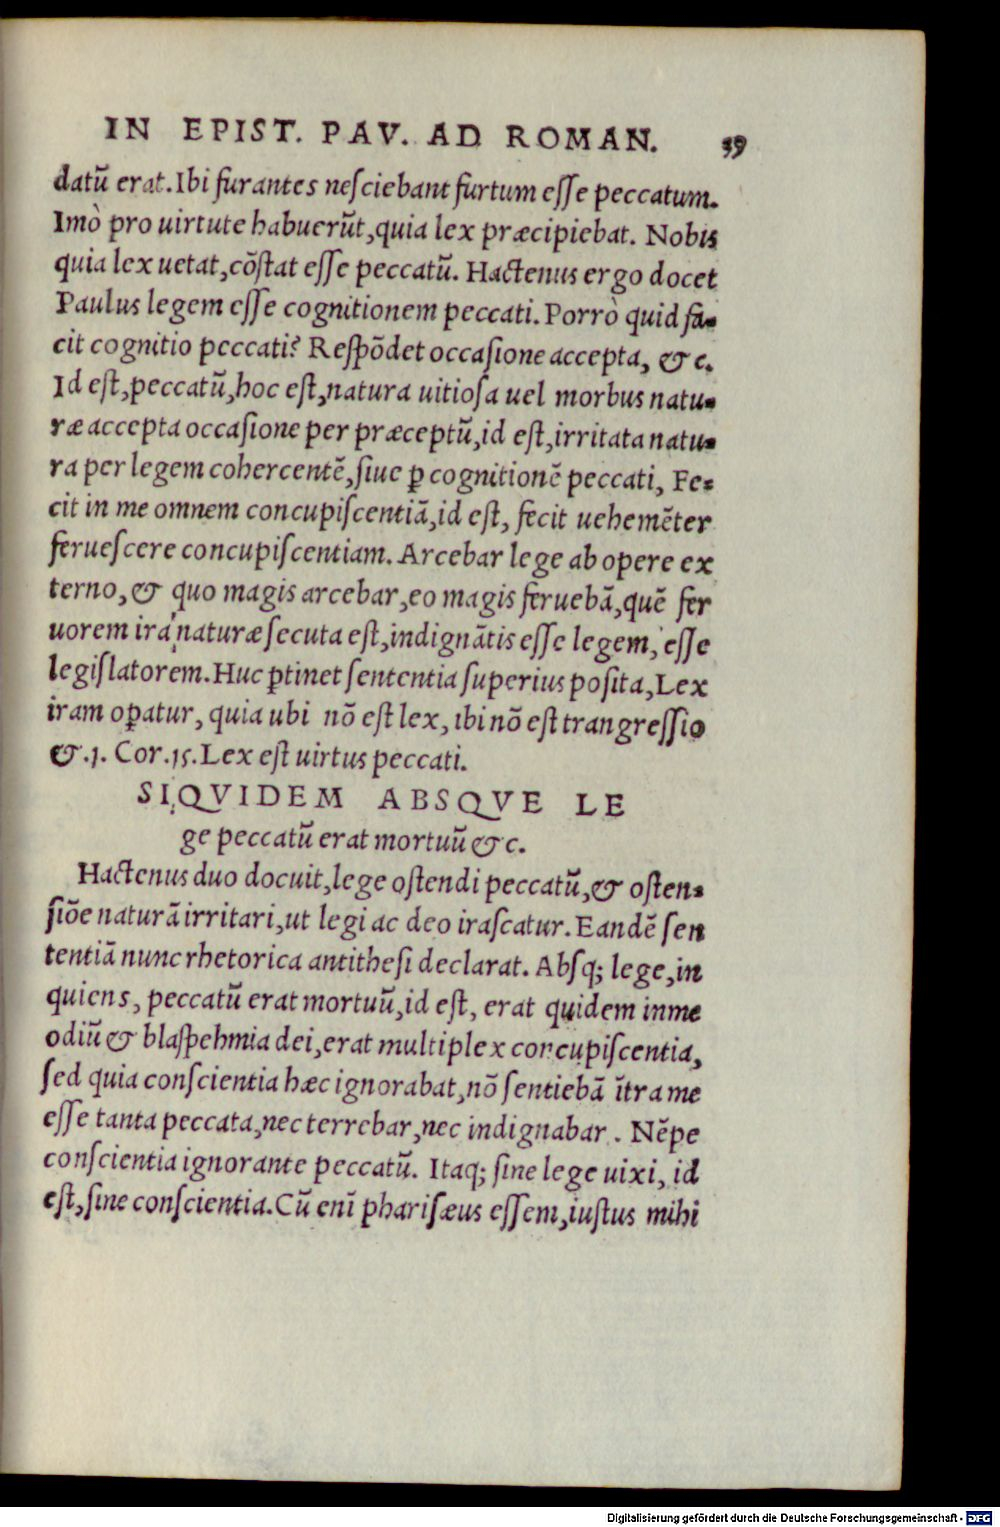 IN EPIST. PAV. AD ROMAN. 39
datũ erat. Ibi furantes neſciebant furtum eſſe peccatum.
Imò pro uirtute habuerũt, quia lex præcipiebat. Nobis
quia lex uetat, cõſtat eſſe peccatũ. Hactenus ergo docet
Paulus legem eſſe cognitionem peccati. Porrò quid fa-
cit cognitio peccati? Reſpõdet occaſione accepta, & c.
Id eſt, peccatũ, hoc eſt, natura uitioſa uel morbus natu-
ræ accepta occaſione per præceptũ, id eſt, irritata natu-
ra per legem cohercentẽ, ſiue ꝑ cognitionẽ peccati, Fe-
cit in me omnem concupiſcentiã, id eſt, fecit uehemẽter
ferueſcere concupiſcentiam. Arcebar lege ab opere ex
terno, & quo magis arcebar, eo magis feruebã, quẽ fer
uorem ira naturæ ſecuta eſt, indignãtis eſſe legem, eſſe
legiſlatorem. Huc ꝑtinet ſententia ſuperius poſita, Lex
iram oꝑatur, quia ubi nõ eſt lex, ibi nõ eſt trangreſſio
& .1. Cor. 15. Lex eſt uirtus peccati.
SIQVIDEM ABSQVE LE
ge peccatũ erat mortuũ & c.
Hactenus duo docuit, lege oſtendi peccatũ, & oſten-
ſiõe naturã irritari, ut legi ac deo iraſcatur. Eandẽ ſen
tentiã nunc rhetorica antitheſi declarat. Abſq; lege, in
quiens, peccatũ erat mortuũ, id eſt, erat quidem in me
odiũ & blaſpehmia dei, erat multiplex concupiſcentia,
ſed quia conſcientia hæc ignorabat, nõ ſentiebã ĩtra me
eſſe tanta peccata, nec terrebar, nec indignabar. Nẽpe
conſcientia ignorante peccatũ. Itaq; ſine lege uixi, id
eſt, ſine conſcientia. Cũ enĩ phariſæus eſſem, iuſtus mihi
Digitalisierung gefördert durch die Deutsche Forschungsgemeinschaft - DFG